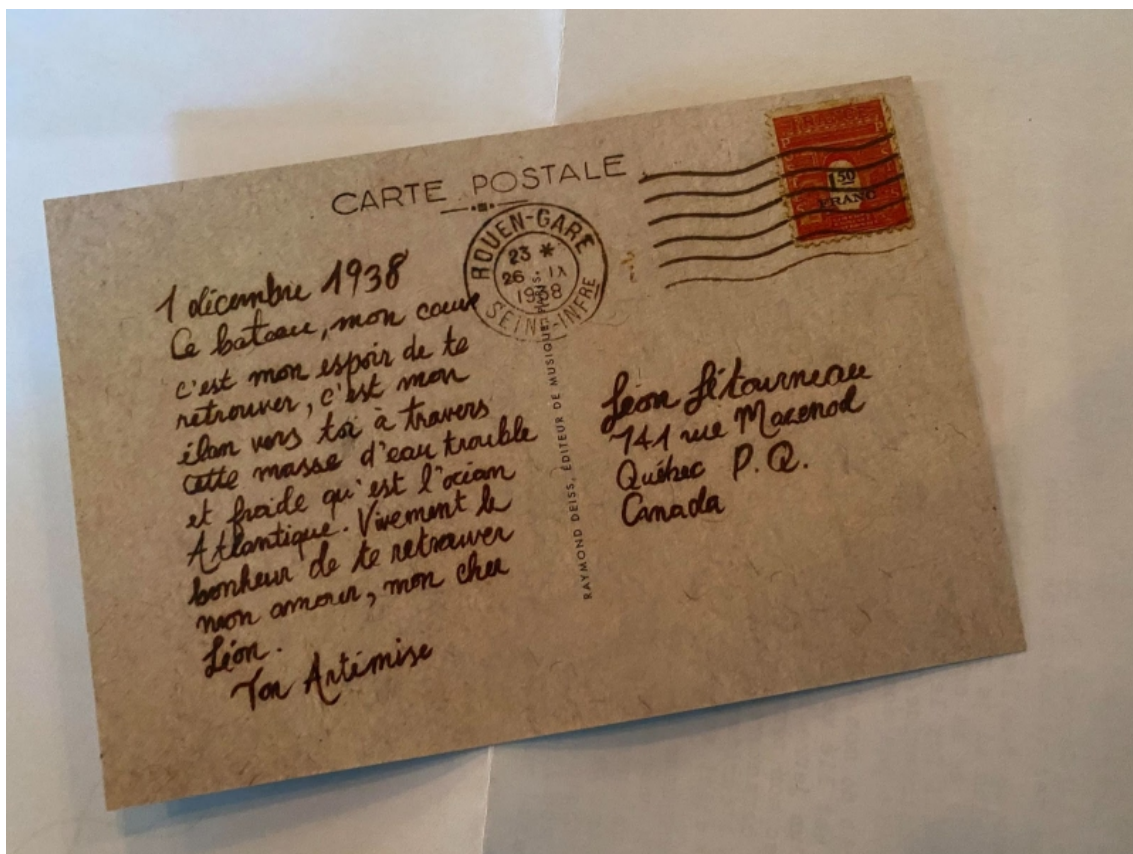 CARTE POSTALE
ROUEN-GARE
23 *
26 · IX
1938
SEINE-INFRE
FRANCE
1 50
FRANC
1 décembre 1938
Ce bateau, mon coeur
c'est mon espoir de te
retrouver, c'est mon
élan vers toi à travers
cette masse d'eau trouble
et froide qu'est l'océan
Atlantique. Vivement le
bonheur de te retrouver
mon amour, mon cher
Léon.
Ton Artémise
RAYMOND DEISS, ÉDITEUR DE MUSIQUE,
Léon Létourneau
741 rue Mazenod
Québec P.Q.
Canada